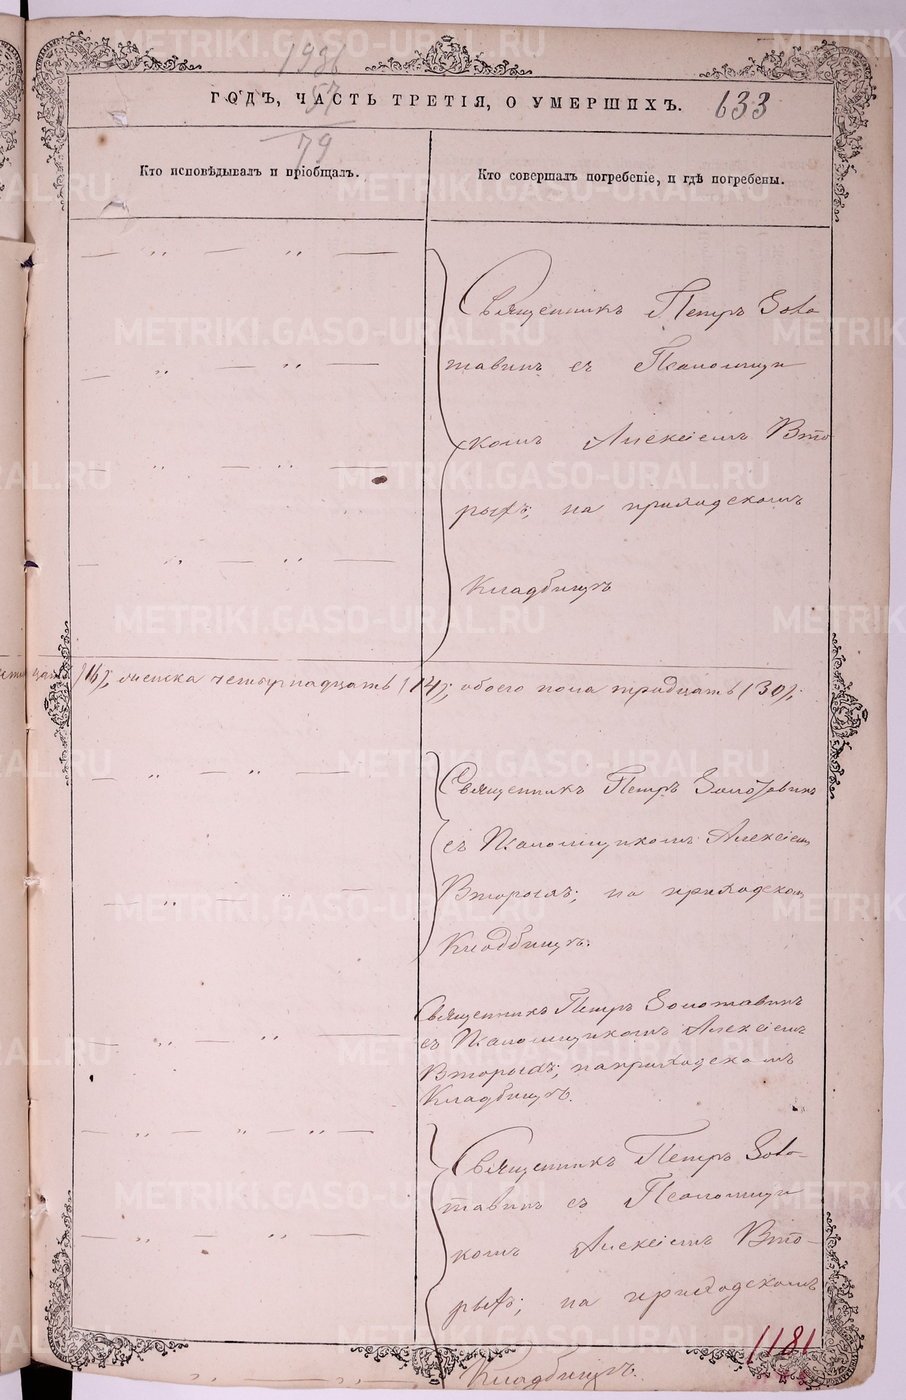 1986
57
79
ГОДЪ, ЧАСТЬ ТРЕТІЯ, О УМЕРШИХЪ.
633
Кто исповѣдывалъ и пріобщалъ.
Кто совершалъ погребеніе, и гдѣ погребены.
Священникъ Петръ Золо
тавинъ съ Псаломщи
комъ Алексѣемъ Вто
рыхъ; на приходскомъ
Кладбищѣ
(16); женска четырнадцать (14); обоего пола тридцать (30);
Священникъ Петръ Золотавинъ
съ Псаломщикомъ Алексѣемъ
Вторыхъ; на приходском
Кладбищѣ.
Священникъ Петръ Золотавинъ
съ Псаломщикомъ Алексѣемъ
Вторыхъ; на приходскомъ
Кладбищѣ.
Священникъ Петръ Золо-
тавинъ съ Псаломщи
комъ Алексѣемъ Вто-
рыхъ; на приходскомъ
Кладбищѣ.
1181
METRIKI.GASO-URAL.RU